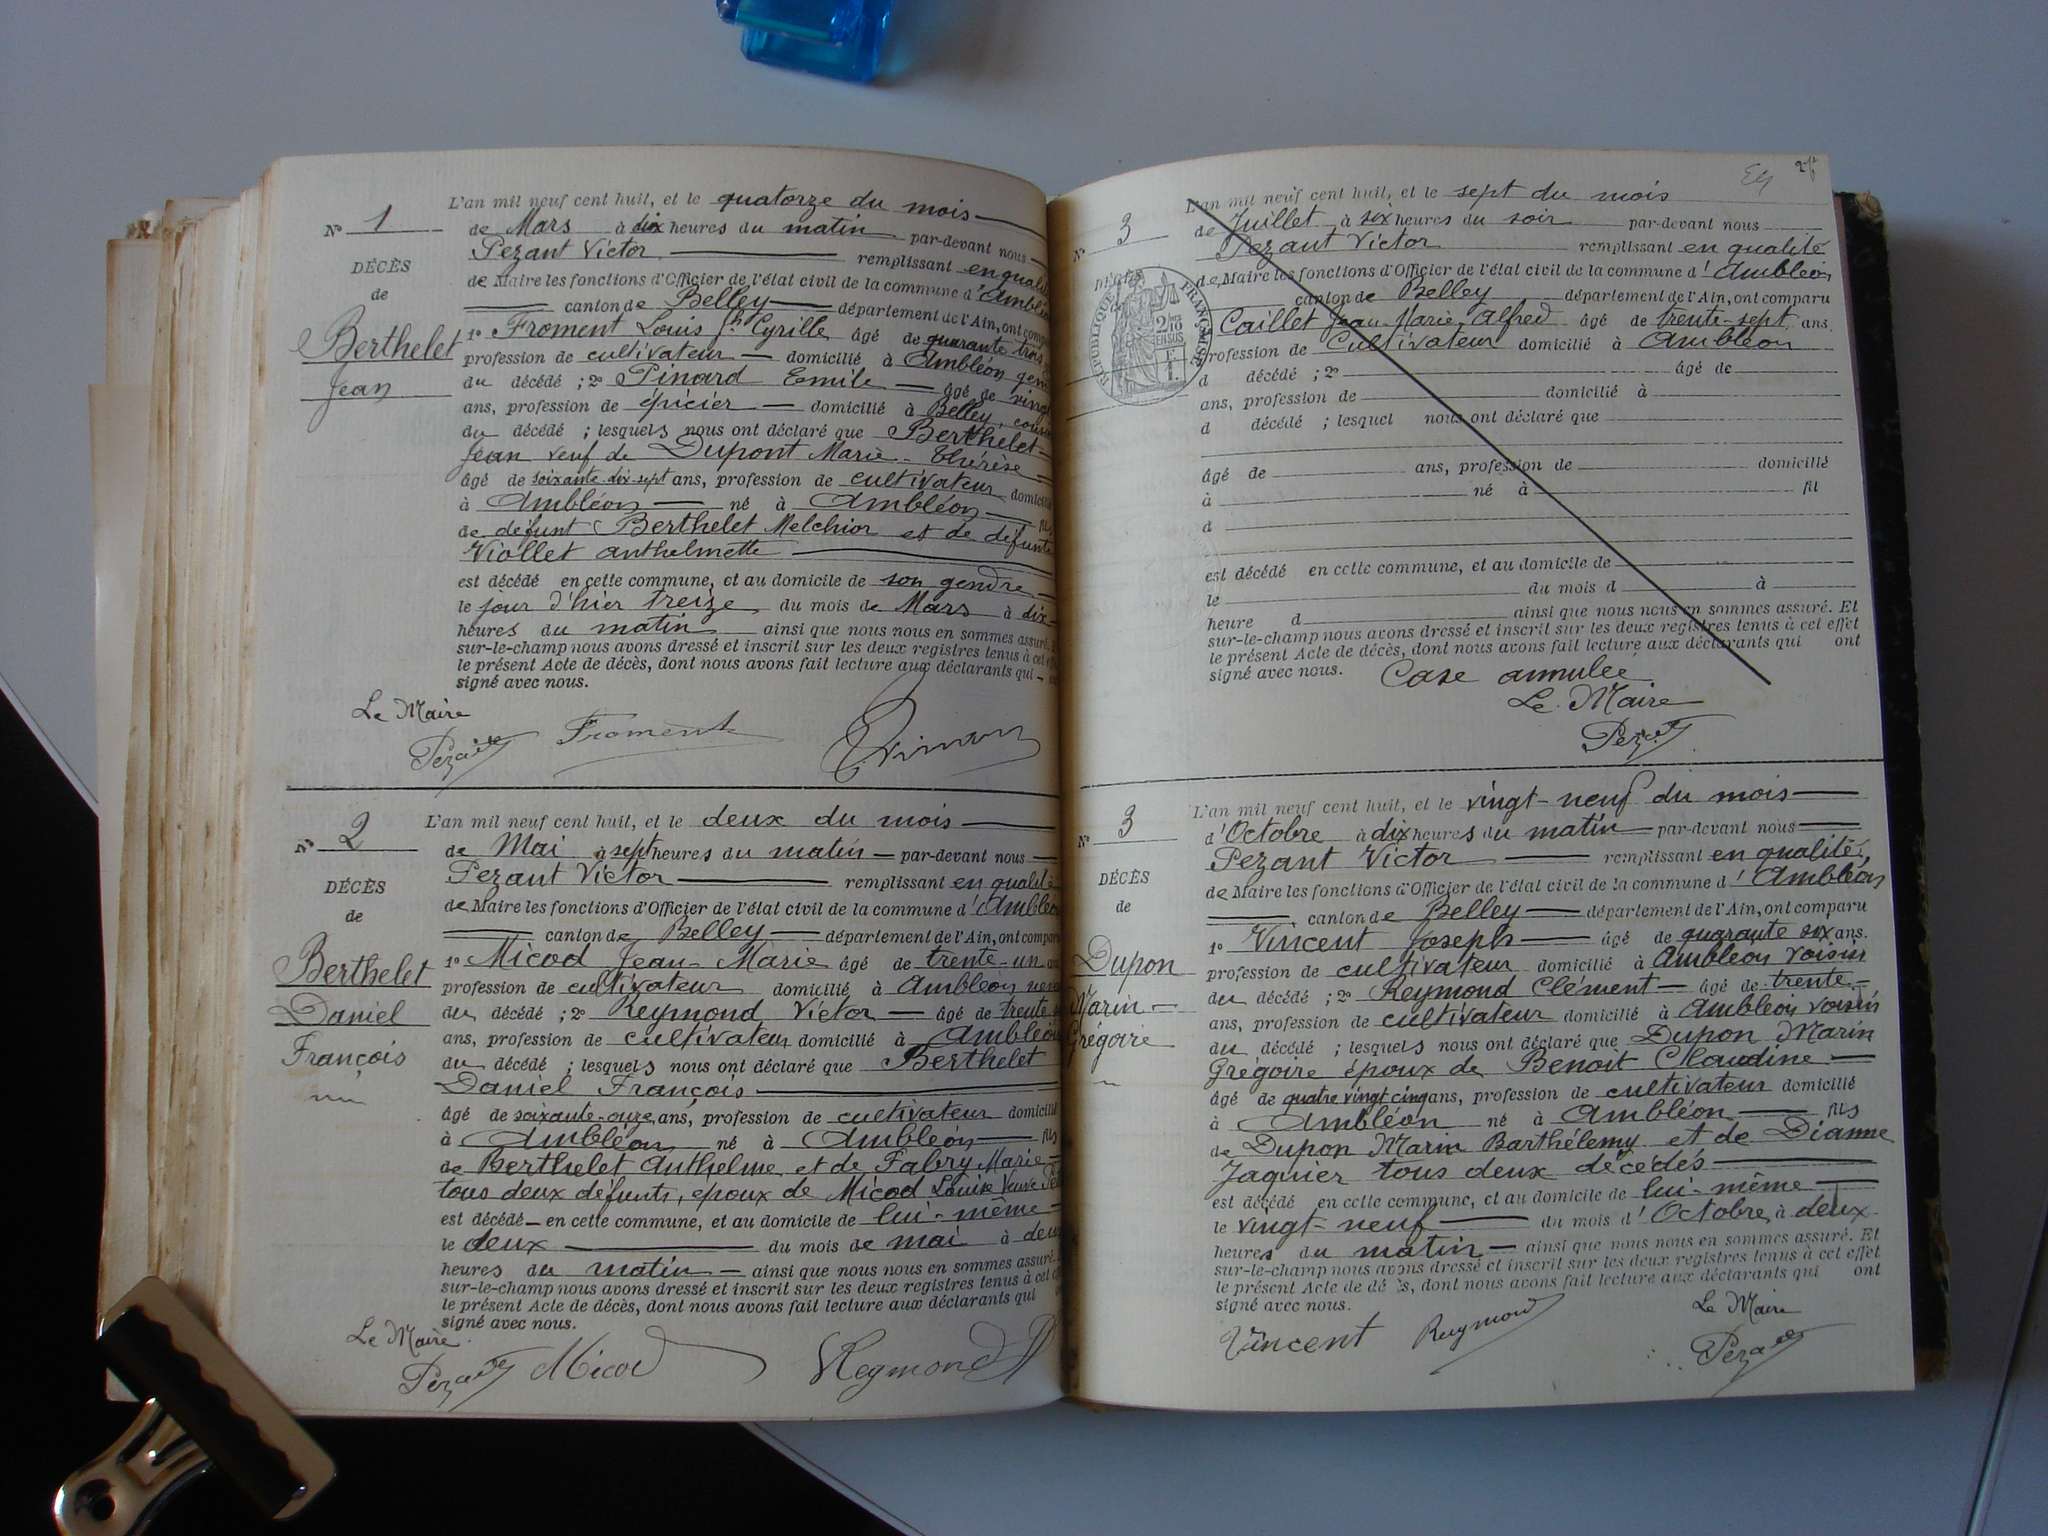 L'an mil neuf cent huit, et le quatorze du mois
N° 1
de Mars à dix heures du matin par-devant nous
Pezant Victor remplissant en qualité
DÉCÈS
de Maire les fonctions d'Officier de l'état civil de la commune d'Ambléon
de
canton de Belley département de l'Ain, ont comparu
Berthelet
1° Froment Louis Jh Cyrille âgé de quarante trois
profession de cultivateur domicilié à Ambléon gendre
Jean
du décédé ; 2° Pinard Emile âgé de vingt
ans, profession de épicier domicilié à Belley, cousin
du décédé ; lesquels nous ont déclaré que Berthelet
Jean veuf de Dupont Marie-Thérèse
âgé de soixante dix-sept ans, profession de cultivateur domicilié
à Ambléon né à Ambléon fils
de défunt Berthelet Melchior et de défunte
Viollet anthelmette
est décédé en cette commune, et au domicile de son gendre
le jour d'hier treize du mois de Mars à dix
heures du matin ainsi que nous nous en sommes assuré.
sur-le-champ nous avons dressé et inscrit sur les deux registres tenus à cet
le présent Acte de décès, dont nous avons fait lecture aux déclarants qui
signé avec nous.
Le Maire
Pezant Froment Pinard
N° 2
L'an mil neuf cent huit, et le deux du mois
de Mai à sept heures du matin par-devant nous
Pezant Victor remplissant en qualité
DÉCÈS
de Maire les fonctions d'Officier de l'état civil de la commune d'Ambléon
de
canton de Belley département de l'Ain, ont comparu
Berthelet
1° Micod Jean-Marie âgé de trente-un ans
profession de cultivateur domicilié à Ambléon neveu
Daniel
du décédé ; 2° Reymond Victor âgé de trente
ans, profession de cultivateur domicilié à Ambléon
François
du décédé ; lesquels nous ont déclaré que Berthelet
Daniel François
âgé de soixante-onze ans, profession de cultivateur domicilié
à Ambléon né à Ambléon fils
de Berthelet Anthelme et de Fabry Marie
tous deux défunts, époux de Micod Louise Veuve
est décédé en cette commune, et au domicile de lui-même
le deux du mois de mai à deux
heures du matin ainsi que nous nous en sommes assuré.
sur-le-champ nous avons dressé et inscrit sur les deux registres tenus à cet
le présent Acte de décès, dont nous avons fait lecture aux déclarants qui
signé avec nous.
Le Maire
Pezant Micod Reymond
L'an mil neuf cent huit, et le sept du mois
N° 3
de Juillet à six heures du soir par-devant nous
Pezant Victor remplissant en qualité
DÉCÈS
de Maire les fonctions d'Officier de l'état civil de la commune d'Ambléon
canton de Belley département de l'Ain, ont comparu
RÉPUBLIQUE FRANÇAISE
2/10 EN SUS
Caillet Jean-Marie Alfred âgé de trente-sept ans
profession de Cultivateur domicilié à Ambléon
d décédé ; 2° âgé de
ans, profession de domicilié à
d décédé ; lesquel nous ont déclaré que
âgé de ans, profession de domicilié
à né à fil
d
est décédé en cette commune, et au domicile de
le du mois d à
heure d ainsi que nous nous en sommes assuré. Et
sur-le-champ nous avons dressé et inscrit sur les deux registres tenus à cet effet
le présent Acte de décès, dont nous avons fait lecture aux déclarants qui ont
signé avec nous. Case annulée
Le Maire
Pezant
N° 3
L'an mil neuf cent huit, et le vingt-neuf du mois
d'Octobre à dix heures du matin par-devant nous
Pezant Victor remplissant en qualité
DÉCÈS
de Maire les fonctions d'Officier de l'état civil de la commune d'Ambléon
de
canton de Belley département de l'Ain, ont comparu
Dupon
1° Vincent Joseph âgé de quarante six ans.
profession de cultivateur domicilié à Ambléon voisin
Marin-
du décédé ; 2° Reymond Clément âgé de trente
ans, profession de cultivateur domicilié à Ambléon voisin
Grégoire
du décédé ; lesquels nous ont déclaré que Dupon Marin
Grégoire époux de Benoit Claudine
âgé de quatre vingt cinq ans, profession de cultivateur domicilié
à Ambléon né à Ambléon fils
de Dupon Marin Barthélemy et de Dianne
Jaquier tous deux décédés
est décédé en cette commune, et au domicile de lui-même
le vingt-neuf du mois d'Octobre à deux
heures du matin ainsi que nous nous en sommes assuré. Et
sur-le-champ nous avons dressé et inscrit sur les deux registres tenus à cet effet
le présent Acte de décès, dont nous avons fait lecture aux déclarants qui ont
signé avec nous.
Le Maire
Vincent Reymond Pezant